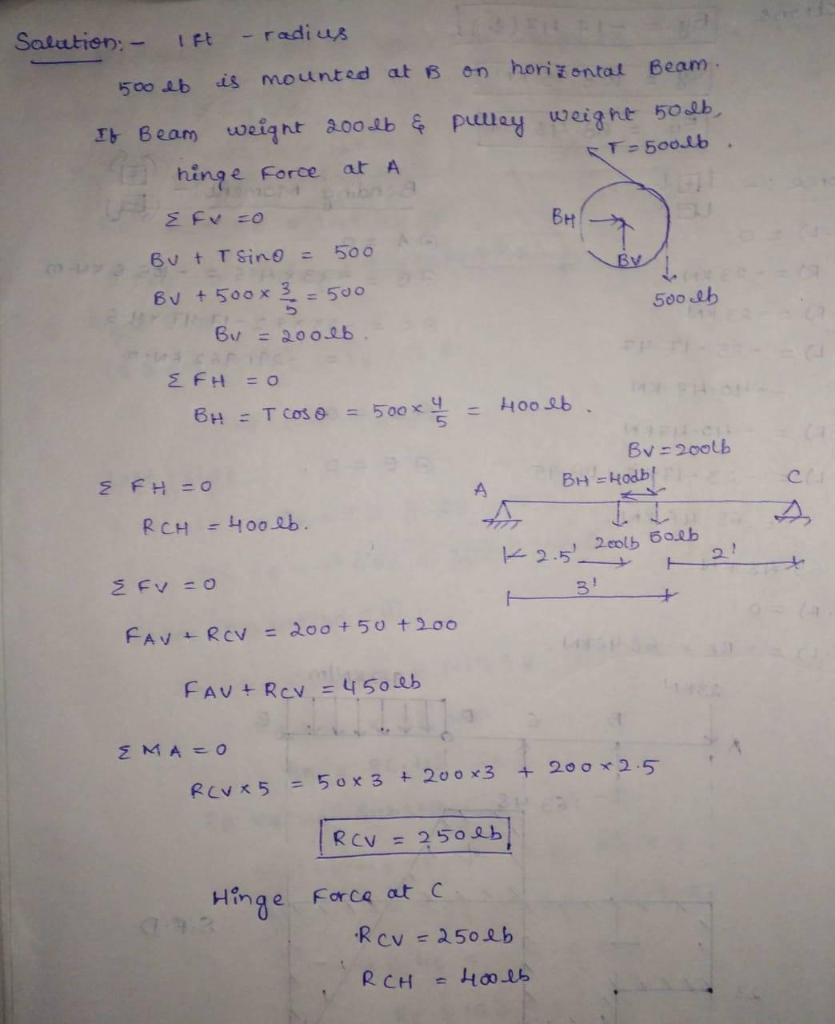 Solution:- 1 ft - radius
500 lb is mounted at B on horizontal Beam.
If Beam weight 200 lb & pulley weight 50 lb,
hinge Force at A
T = 500 lb.
Σ FV = 0
BH
BV
500 lb
BV + T Sinθ = 500
BV + 500 × 3/5 = 500
BV = 200 lb.
Σ FH = 0
BH = T cosθ = 500 × 4/5 = 400 lb.
BV = 200 lb
Σ FH = 0
A
BH = 400 lb
C
RCH = 400 lb.
200 lb 50 lb
2.5' 2'
3'
Σ FV = 0
FAV + RCV = 200 + 50 + 200
FAV + RCV = 450 lb
Σ MA = 0
RCV × 5 = 50 × 3 + 200 × 3 + 200 × 2.5
RCV = 250 lb
Hinge Force at C
RCV = 250 lb
RCH = 400 lb